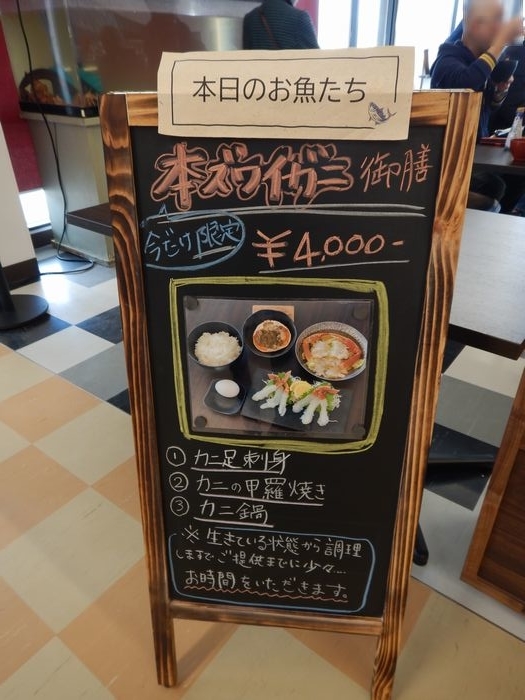 本日のお魚たち
本ズワイガニ御膳
今だけ限定!
¥4,000-
① カニ足刺身
② カニの甲羅焼き
③ カニ鍋
※ 生きている状態から調理
しますでご提供までに少々…
お時間をいただきます。